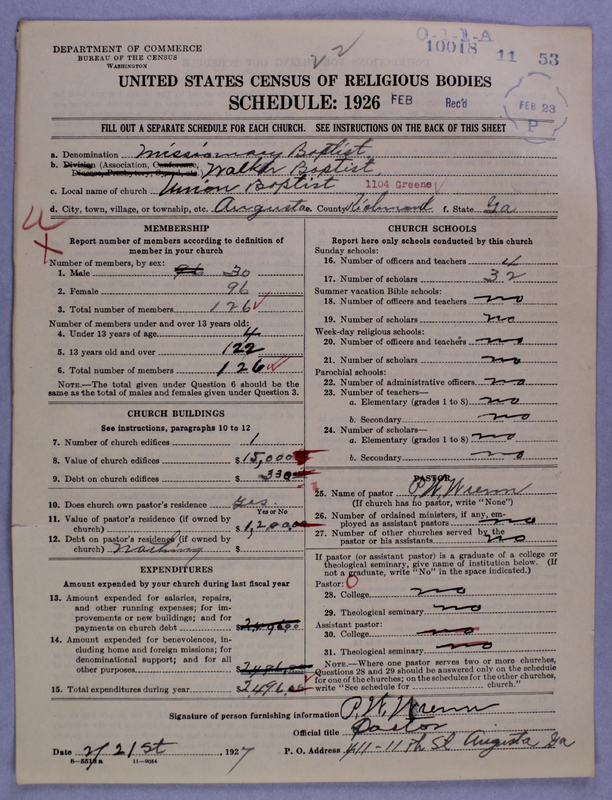 DEPARTMENT OF COMMERCE
BUREAU OF THE CENSUS
WASHINGTON
O-1-1-A
10018 11 53
22
UNITED STATES CENSUS OF RELIGIOUS BODIES
SCHEDULE: 1926
FEB Rec'd
FEB 23
P
FILL OUT A SEPARATE SCHEDULE FOR EACH CHURCH. SEE INSTRUCTIONS ON THE BACK OF THIS SHEET
a. Denomination Missionary Baptist
b. Division (Association, Conference, Diocese, Presbytery, Synod, etc. Walker Baptist
c. Local name of church Union Baptist 1104 Greene
d. City, town, village, or township, etc. Augusta e. County Richmond f. State Ga
MEMBERSHIP
Report number of members according to definition of member in your church
Number of members, by sex:
1. Male 96 30
2. Female 96
3. Total number of members 126
Number of members under and over 13 years old:
4. Under 13 years of age 4
5. 13 years old and over 122
6. Total number of members 126
NOTE.—The total given under Question 6 should be the same as the total of males and females given under Question 3.
CHURCH BUILDINGS
See instructions, paragraphs 10 to 12
7. Number of church edifices 1
8. Value of church edifices $15,000
9. Debt on church edifices $330
10. Does church own pastor's residence yes
Yes or No
11. Value of pastor's residence (if owned by church) $1,200.00
12. Debt on pastor's residence (if owned by church) Nothing $
EXPENDITURES
Amount expended by your church during last fiscal year
13. Amount expended for salaries, repairs, and other running expenses; for improvements or new buildings; and for payments on church debt $2,496.00
14. Amount expended for benevolences, including home and foreign missions; for denominational support; and for all other purposes $2,496.00
15. Total expenditures during year $2,496.00
CHURCH SCHOOLS
Report here only schools conducted by this church
Sunday schools:
16. Number of officers and teachers 4
17. Number of scholars 32
Summer vacation Bible schools:
18. Number of officers and teachers no
19. Number of scholars no
Week-day religious schools:
20. Number of officers and teachers no
21. Number of scholars no
Parochial schools:
22. Number of administrative officers no
23. Number of teachers—
a. Elementary (grades 1 to 8) no
b. Secondary no
24. Number of scholars—
a. Elementary (grades 1 to 8) no
b. Secondary no
PASTOR
25. Name of pastor P. W. Wrenn
(If church has no pastor, write "None")
26. Number of ordained ministers, if any, employed as assistant pastors no
27. Number of other churches served by the pastor or his assistants no
If pastor (or assistant pastor) is a graduate of a college or theological seminary, give name of institution below. (If not a graduate, write "No" in the space indicated.)
Pastor: 0
28. College no
29. Theological seminary no
Assistant pastor:
30. College no
31. Theological seminary no
NOTE.—Where one pastor serves two or more churches, Questions 28 and 29 should be answered only on the schedule for one of the churches; on the schedules for the other churches, write "See schedule for church."
Signature of person furnishing information P. W. Wrenn
Official title Pastor
Date 2/21st, 1927 P. O. Address 411-11th St Augusta Ga
8—5518a 11—9014